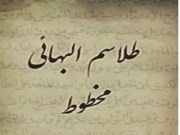 طلاسم البهائى
مخطوط